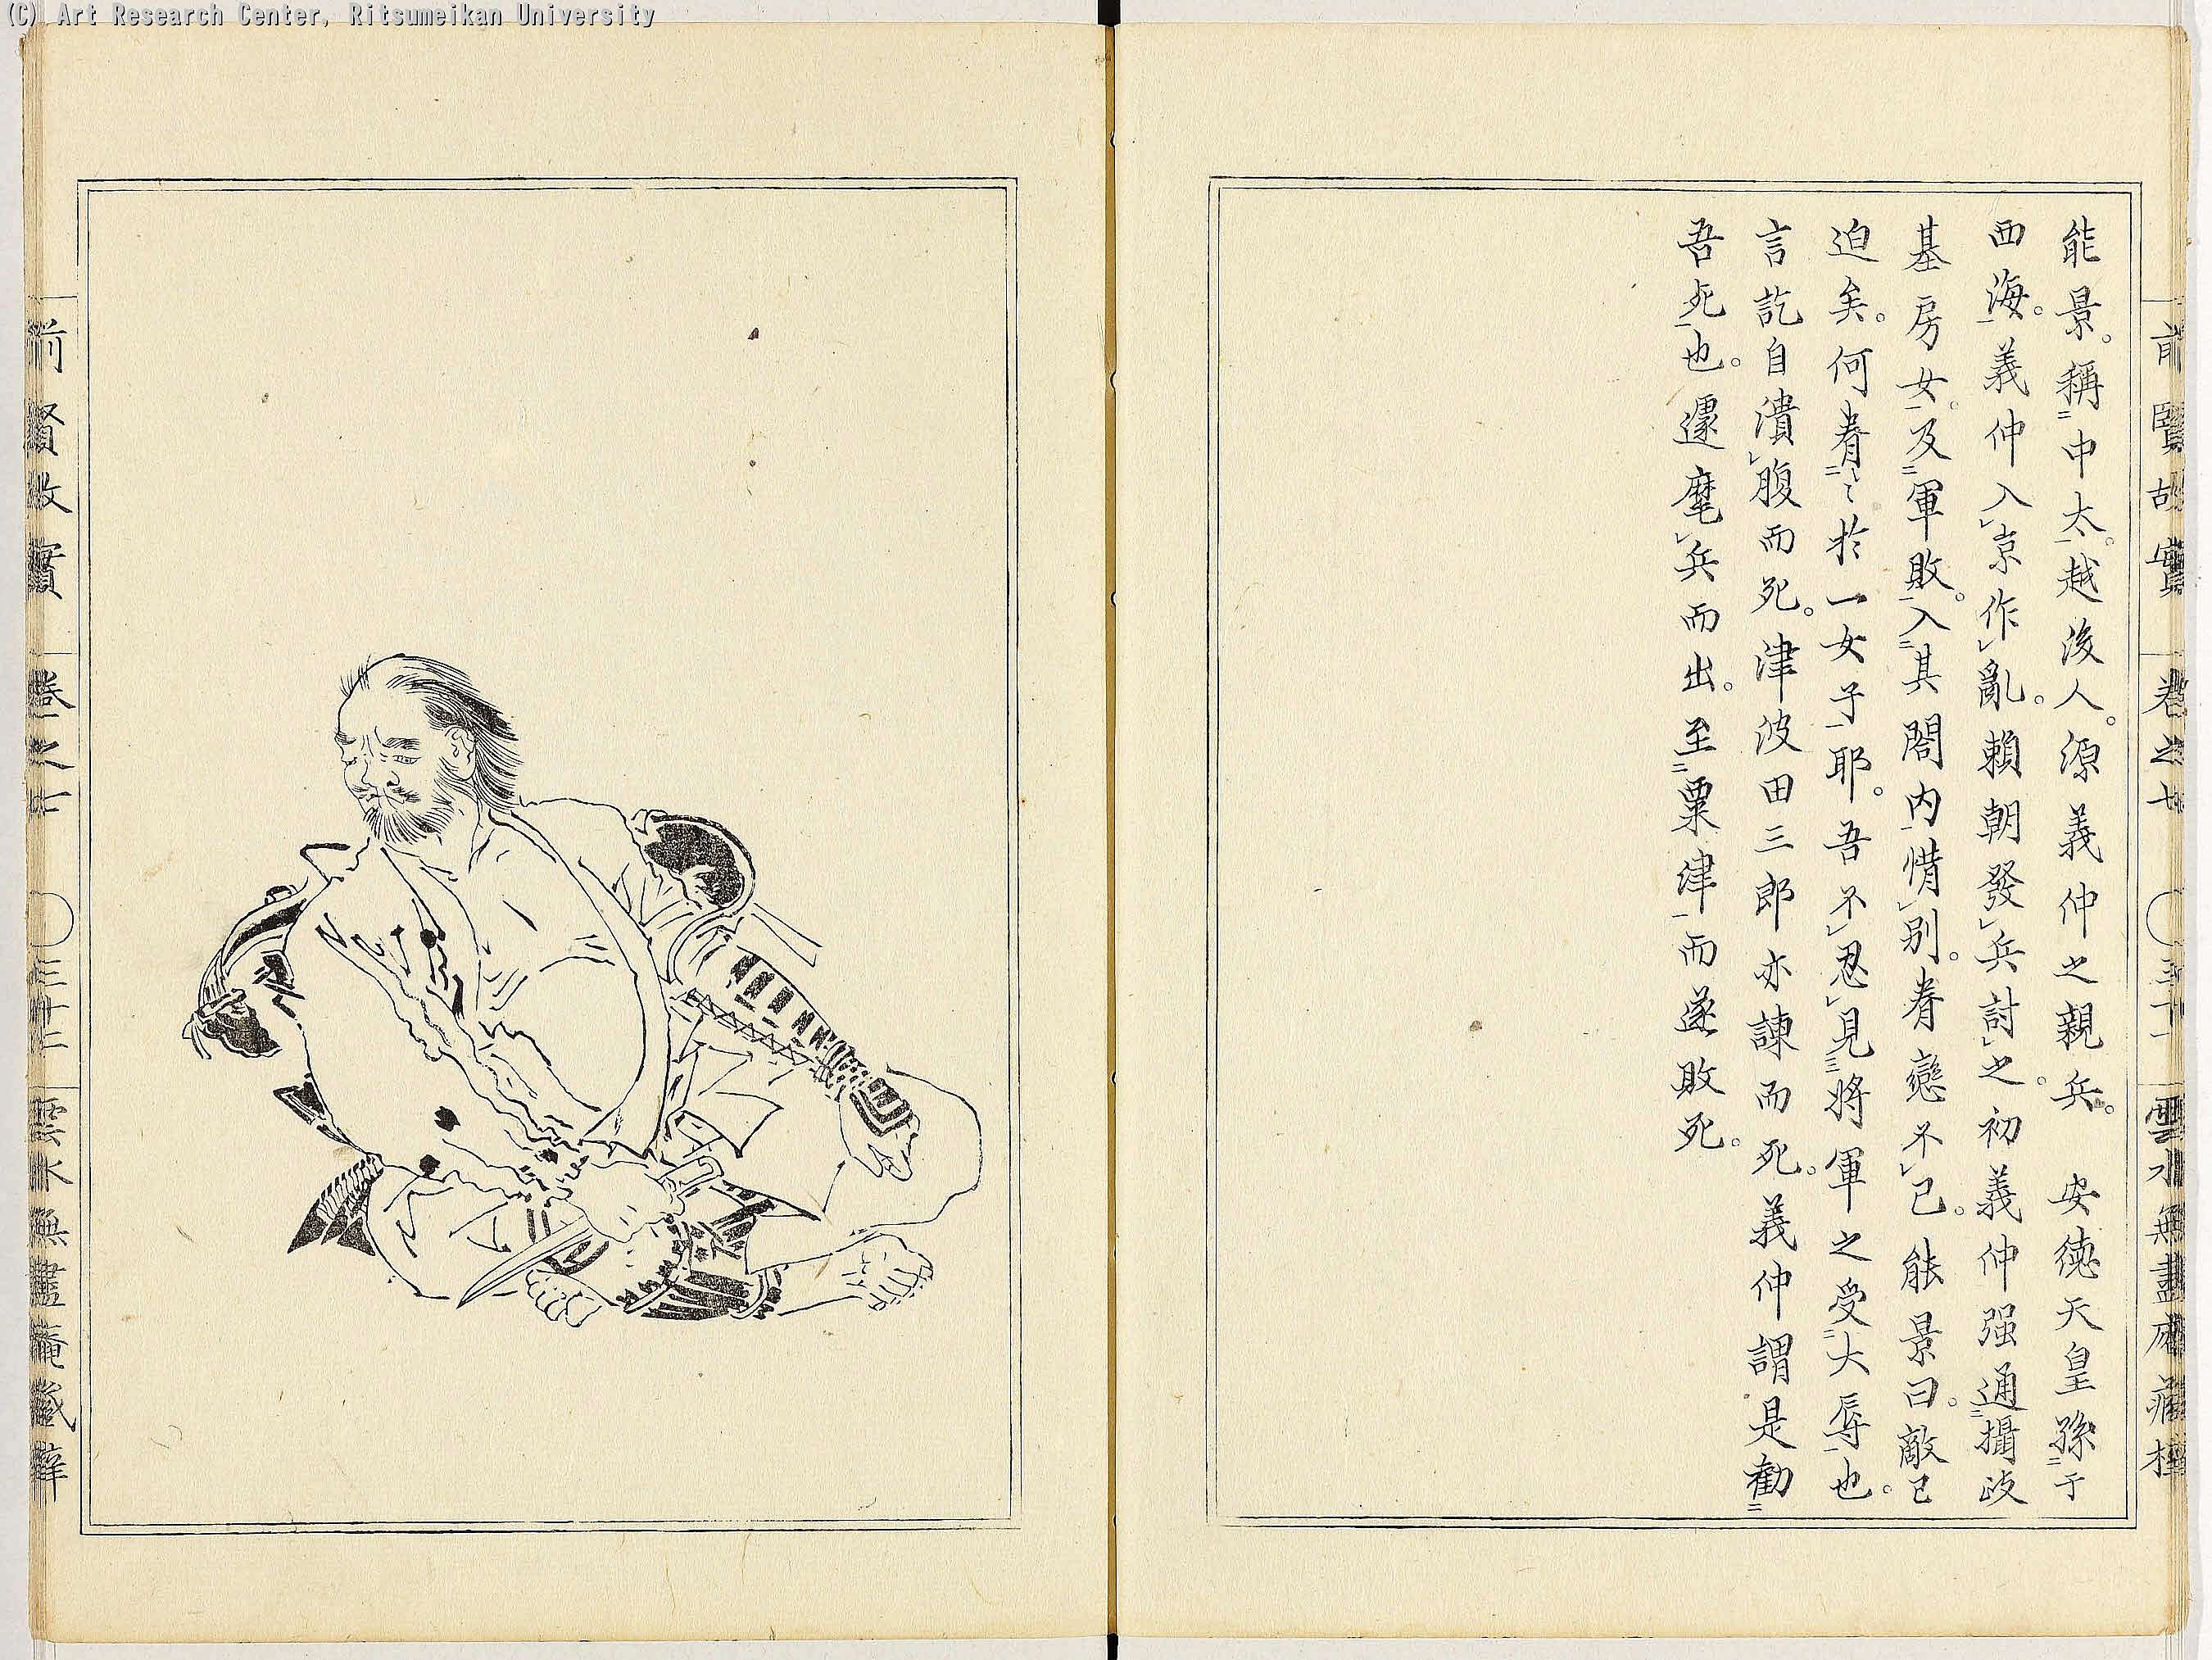 (C) Art Research Center, Ritsumeikan University
前賢故實 卷之七 〇三十一 雲水無盡庵藏梓
能景。稱二中太一。越後人。源義仲之親兵。 安德天皇孫二于
西海一。義仲入レ京作レ亂。賴朝發レ兵討レ之。初義仲强通二攝政
基房女一。及二軍敗一。入二其閤內一惜レ別。眷戀不レ已。能景曰。敵已
迫矣。何眷二〻於一女子一耶。吾不レ忍レ見三將軍之受二大辱一也。
言訖自潰レ腹而死。津波田三郎亦諫而死。義仲謂是勸二
吾死一也。遽麾レ兵而出。至二粟津一而遂敗死。
前賢故實 卷之七 〇三十二 雲水無盡庵藏梓